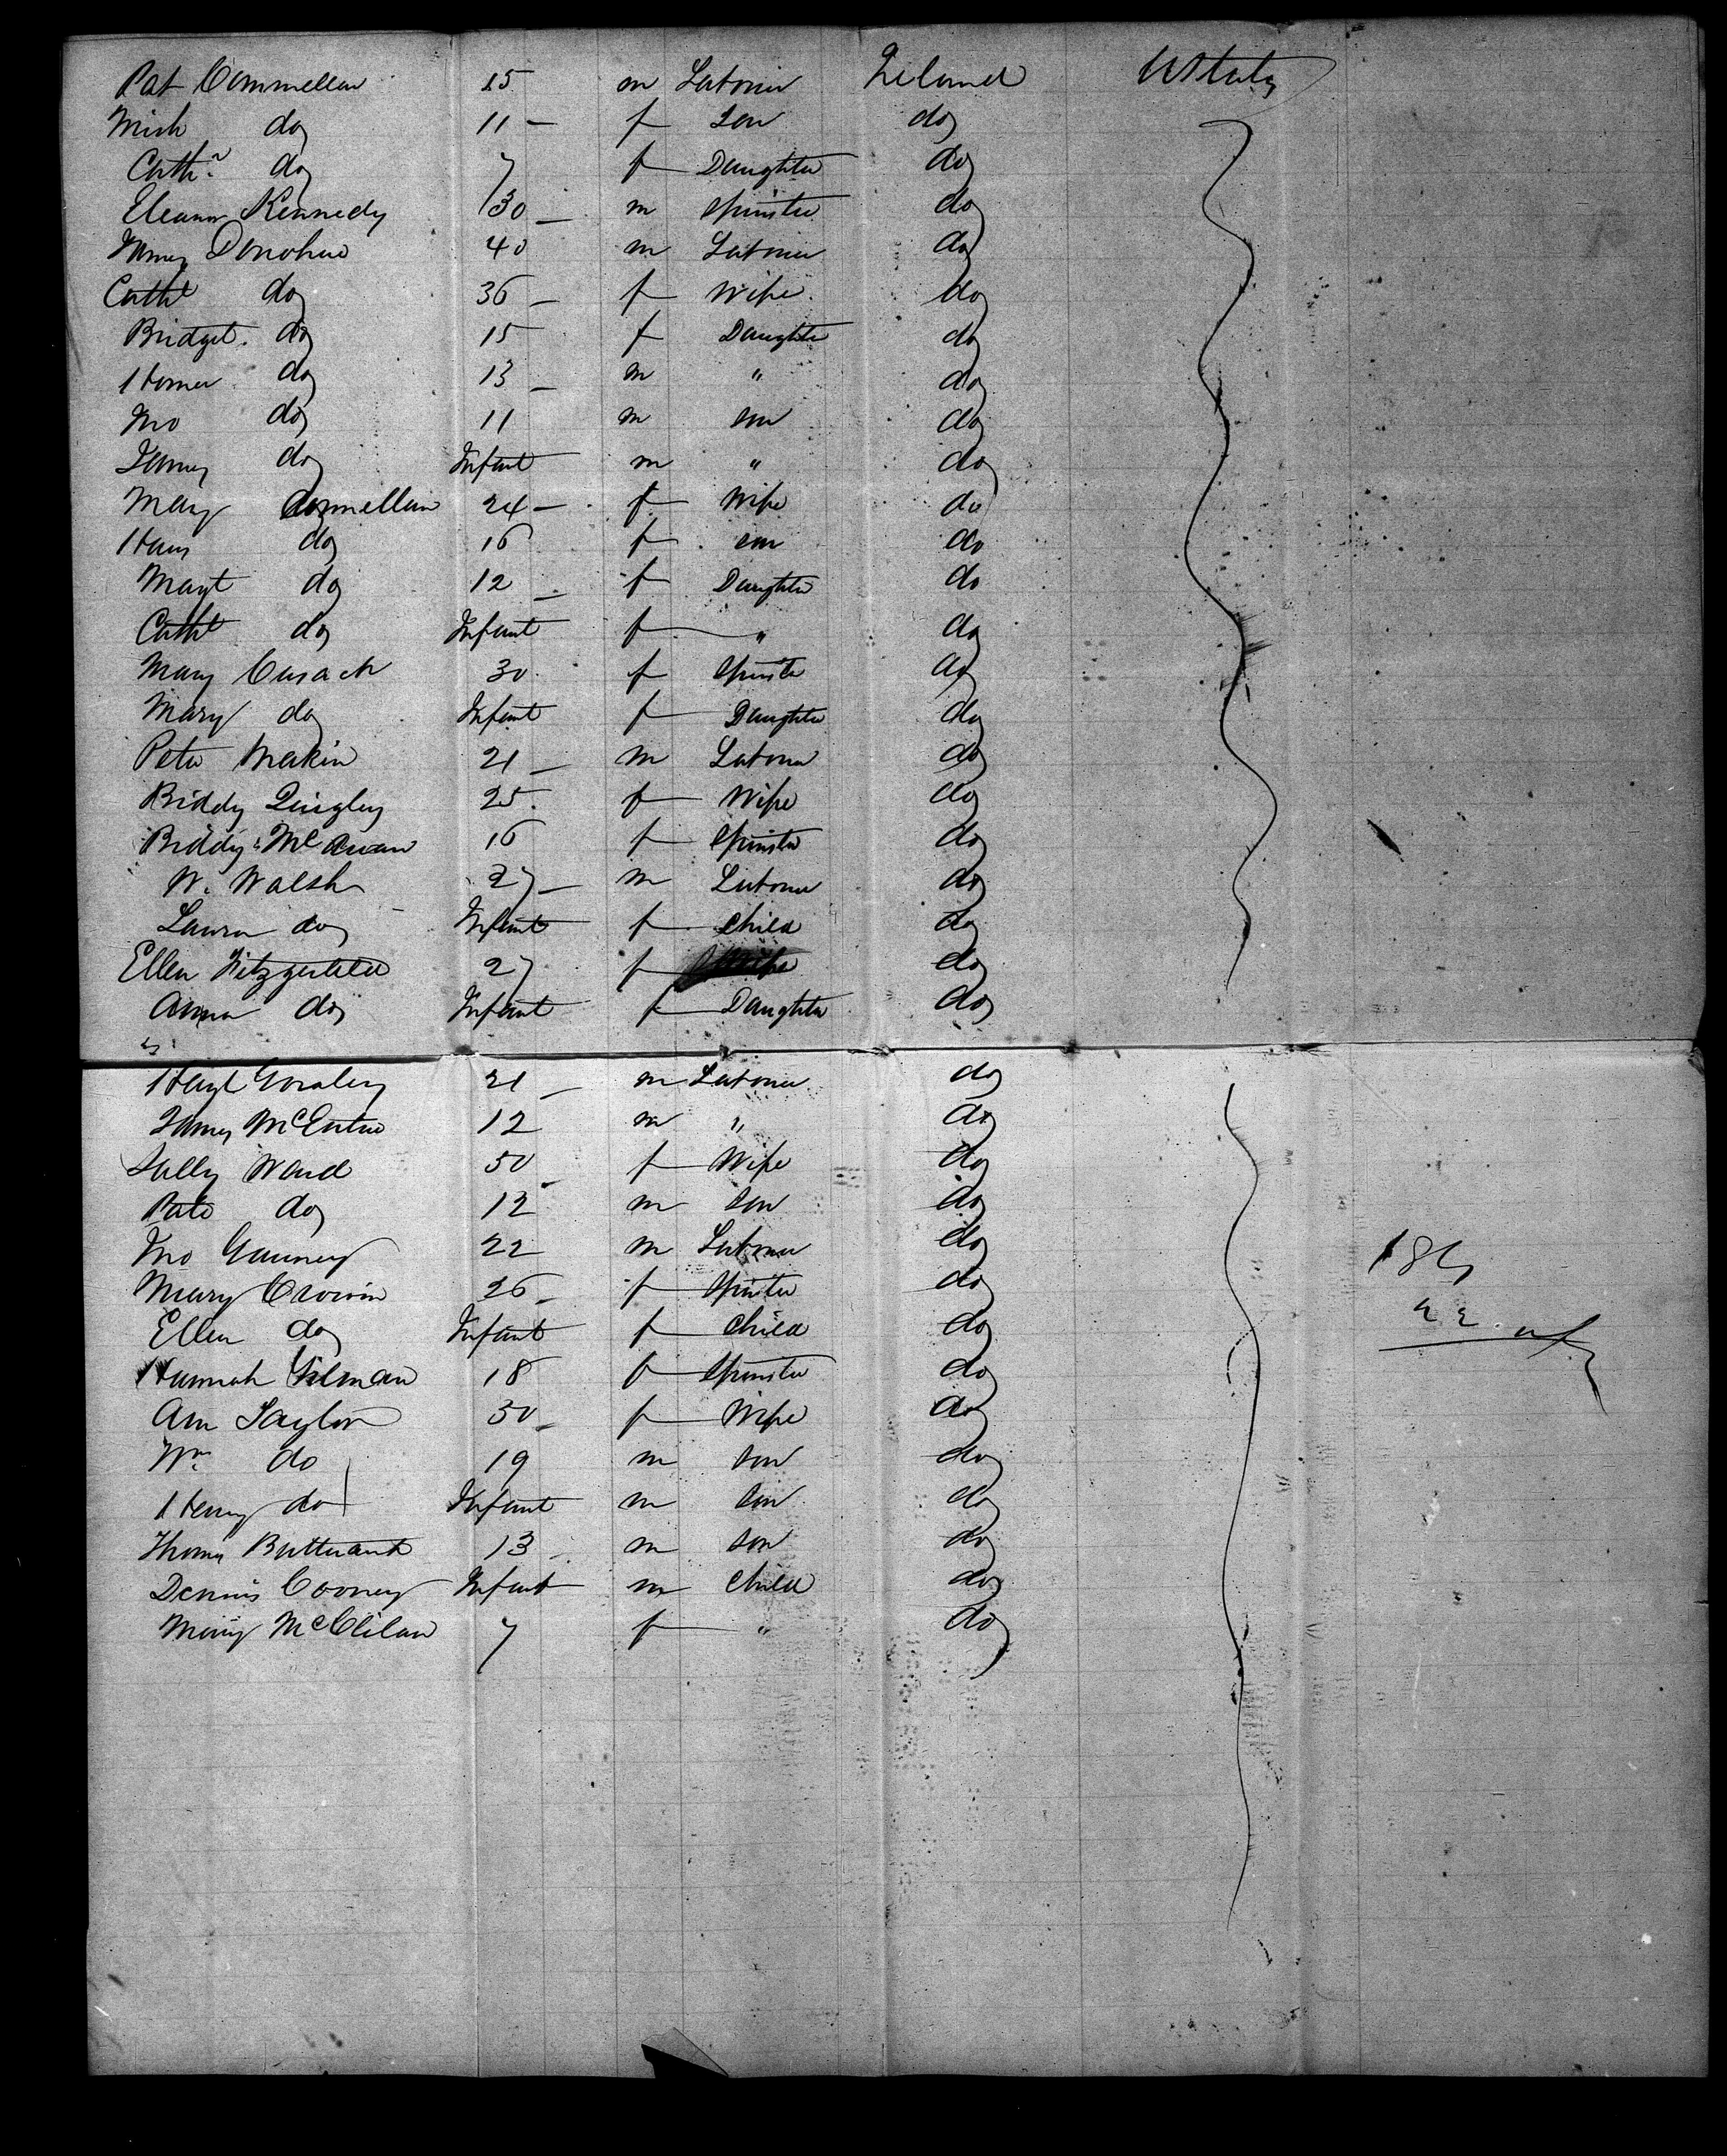 Pat Commellan 15 m Laborer Ireland UStates
Mich do 11 - f Son do
Cathn do 7 f Daughter do
Eleanor Kennedy 30 - m Spinster do
James Donohue 40 m Laborer do
Catht do 36 - f Wife do
Bridget do 15 f Daughter do
Honer do 13 - m " do
Jno do 11 m son do
James do Infant m " do
Mary Conmellan 24 - f Wife do
do 16 f son do
Magt do 12 - f Daughter do
Catht do Infant f " do
Mary Cusack 30 f Spinster do
Mary do Infant f Daughter do
Peter Meakin 21 - m Laborer do
Biddy Quigley 25 f Wife do
Biddy Mc 16 f Spinster do
W. Walsh 27 - m Laborer do
Laura do Infant f Child do
Ellen Fitzgerald 27 f Wife do
Anna do Infant f Daughter do
21 - m Laborer do
James McEntire 12 m " do
Sally Ward 50 f Wife do
Pate do 12 m son do
Jno Gaurney 22 m Laborer do
Mary Cronin 26 - f Spinster do
Ellen do Infant f Child do
Hannah Gilman 18 f Spinster do
Ann Taylor 30 - f Wife do
Wm do 19 m son do
Henry do Infant m son do
Thomas Butterank 13 - m son do
Dennis Cooney Infant m Child do
Mary McClilan 7 f " do
186
22